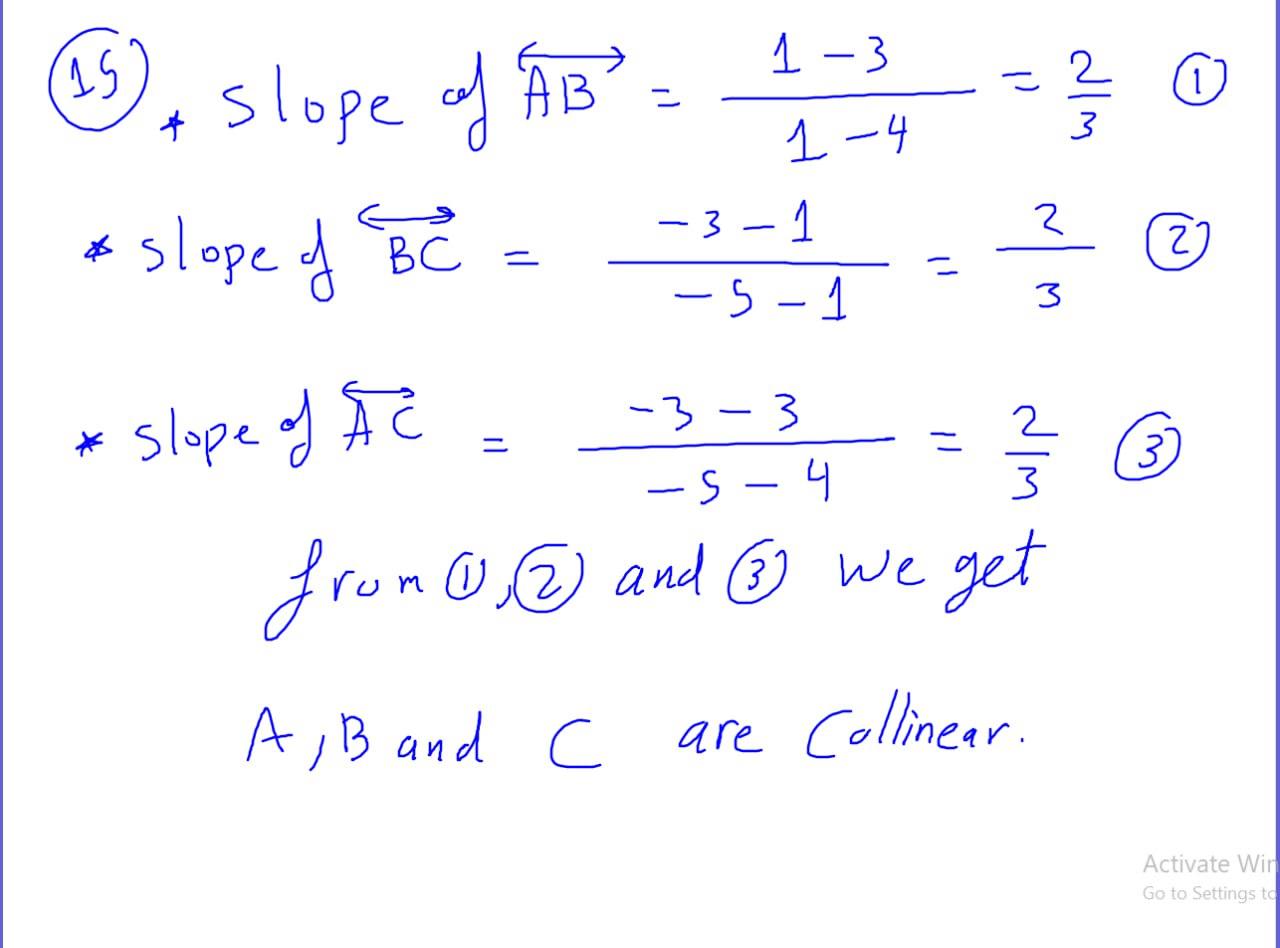 (15) * slope of AB = (1 - 3)/(1 - 4) = 2/3 ①
* slope of BC = (-3 - 1)/(-5 - 1) = 2/3 ②
* slope of AC = (-3 - 3)/(-5 - 4) = 2/3 ③
from ①, ② and ③ we get
A, B and C are Collinear.
Activate Win
Go to Settings to